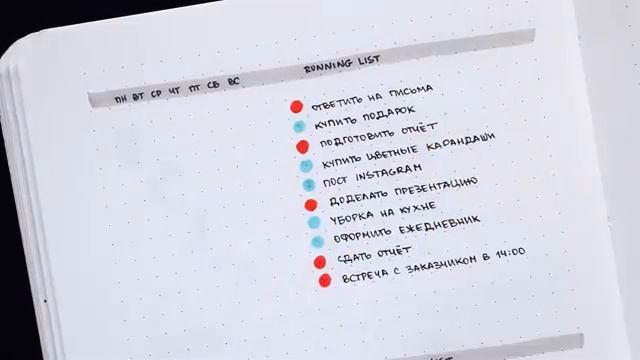 ПН ВТ СР ЧТ ПТ СБ ВС RUNNING LIST
ОТВЕТИТЬ НА ПИСЬМА
КУПИТЬ ПОДАРОК
ПОДГОТОВИТЬ ОТЧЁТ
КУПИТЬ ЦВЕТНЫЕ КАРАНДАШИ
ПОСТ INSTAGRAM
ДОДЕЛАТЬ ПРЕЗЕНТАЦИЮ
УБОРКА НА КУХНЕ
ОФОРМИТЬ ЕЖЕДНЕВНИК
СДАТЬ ОТЧЁТ
ВСТРЕЧА С ЗАКАЗЧИКОМ В 14:00